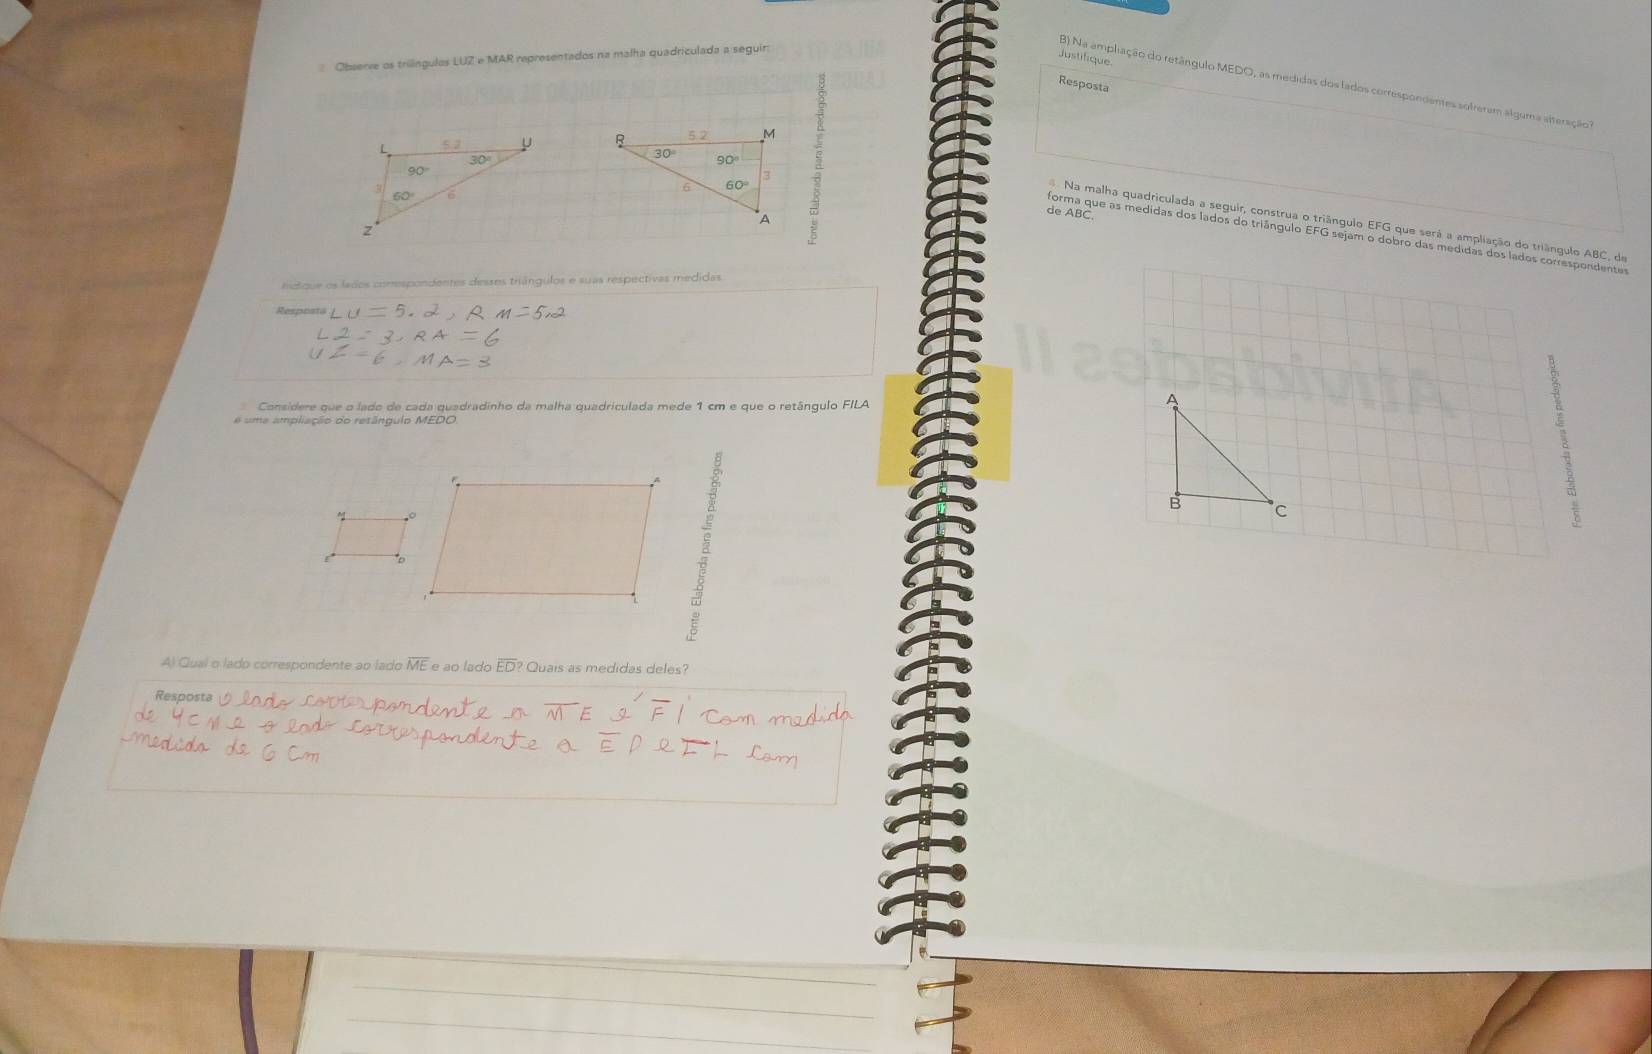 2 Observe os triângulos LUZ e MAR representados na malha quadriculada a seguir:
L 5.2 U
90° 30°
3 60° 6
Z
R 5.2 M
30° 90°
6 60° 3
A
Fonte: Elaborada para fins pedagógicos
Indique os lados correspondentes desses triângulos e suas respectivas medidas.
Resposta LU = 5.2, RM = 5,2
LZ = 3, RA = 6
UZ = 6, MA = 3
3 Considere que o lado de cada quadradinho da malha quadriculada mede 1 cm e que o retângulo FILA
é uma ampliação do retângulo MEDO.
F A
M O
E D
I L
Fonte: Elaborada para fins pedagógicos
A) Qual o lado correspondente ao lado ME e ao lado ED? Quais as medidas deles?
Resposta O lado correspondente a ME é FI com medida
de 4cm e o lado correspondente a ED e IL com
medida de 6 cm
B) Na ampliação do retângulo MEDO, as medidas dos lados correspondentes sofreram alguma alteração?
Justifique.
Resposta
4 Na malha quadriculada a seguir, construa o triângulo EFG que será a ampliação do triângulo ABC, de
forma que as medidas dos lados do triângulo EFG sejam o dobro das medidas dos lados correspondentes
de ABC.
A
B C
Fonte: Elaborada para fins pedagógicos